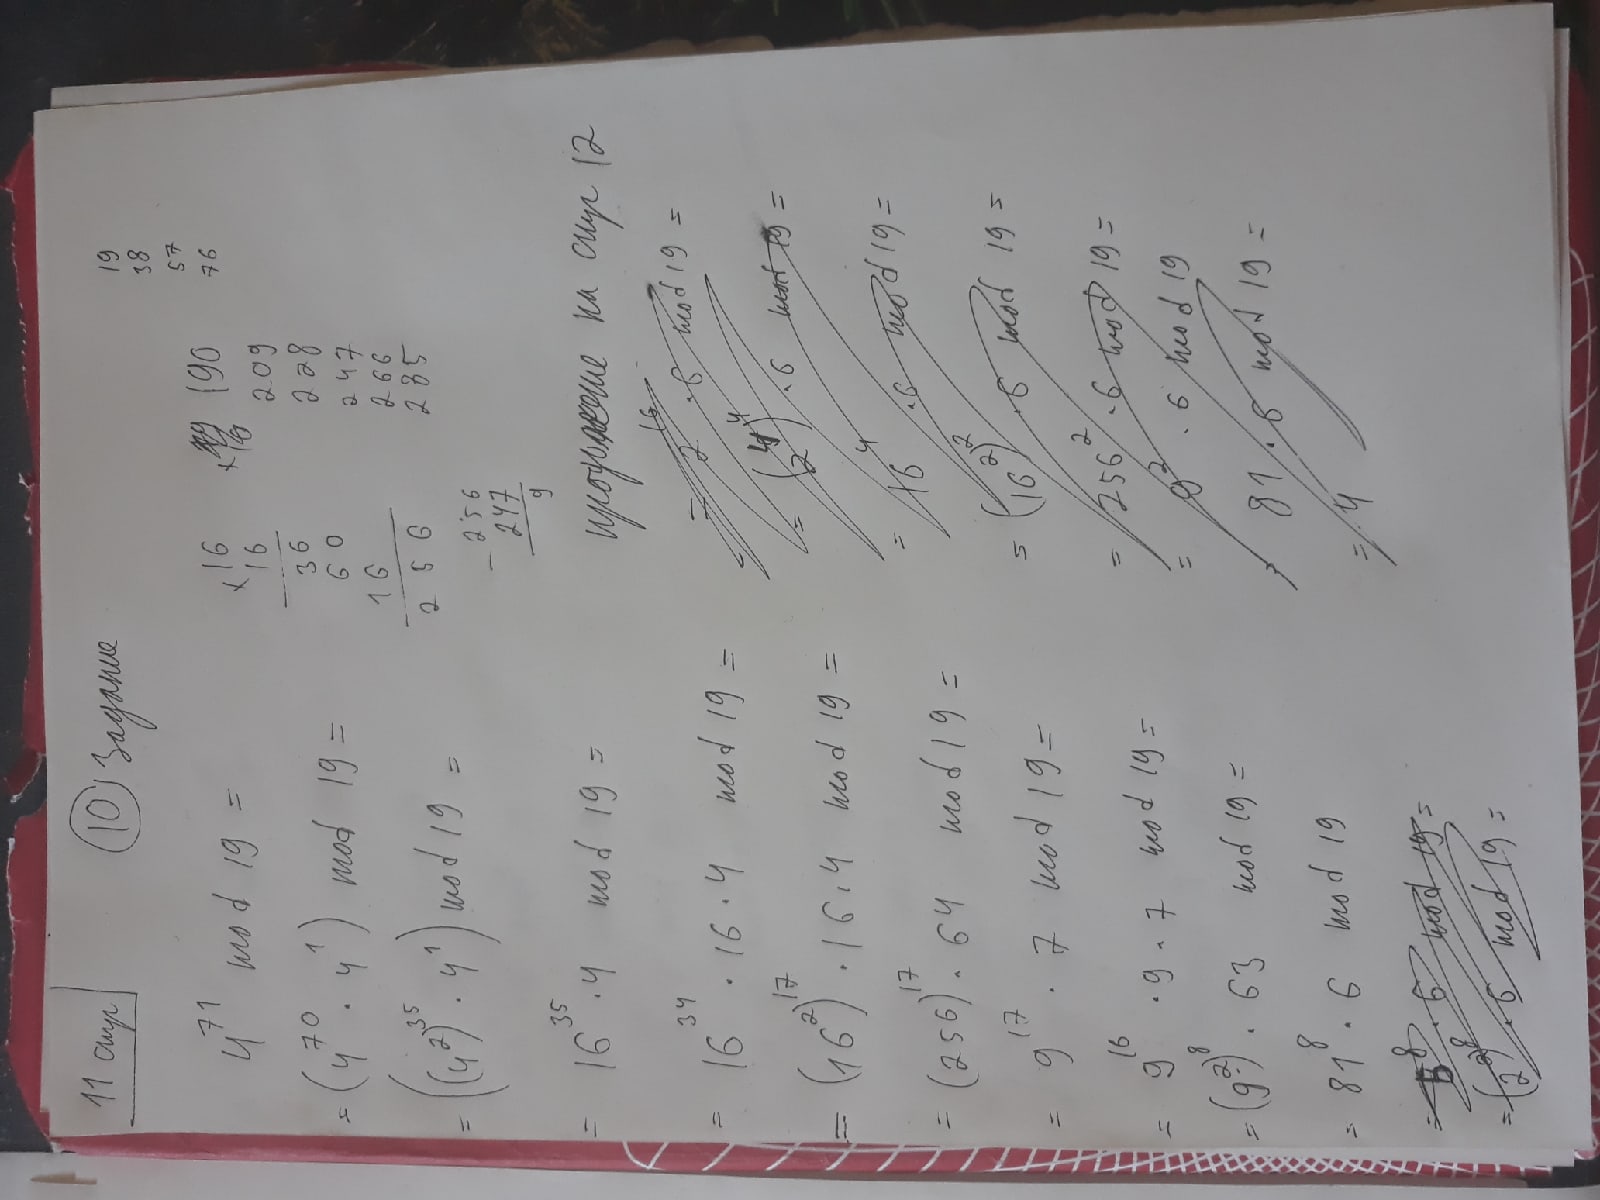 11 стр
10 Задание
4^71 mod 19 =
= (4^70 · 4^1) mod 19 =
= ((4^2)^35 · 4^1) mod 19 =
= 16^35 · 4 mod 19 =
= 16^34 · 16 · 4 mod 19 =
= (16^2)^17 · 16 · 4 mod 19 =
= (256)^17 · 64 mod 19 =
= 9^17 · 7 mod 19 =
= 9^16 · 9 · 7 mod 19 =
= (9^2)^8 · 63 mod 19 =
= 81^8 · 6 mod 19
= 5^8 · 6 mod 19 =
= (2^2)^8 · 6 mod 19 =
× 16
16
36
60
16
256
- 256
247
9
190
209
228
247
266
285
19
38
57
76
продолжение на стр 12
= 2^16 · 6 mod 19 =
= (2^4)^4 · 6 mod 19 =
= 16^4 · 6 mod 19 =
= (16^2)^2 · 6 mod 19 =
= 256^2 · 6 mod 19 =
= 9^2 · 6 mod 19
= 81 · 6 mod 19 =
= 4